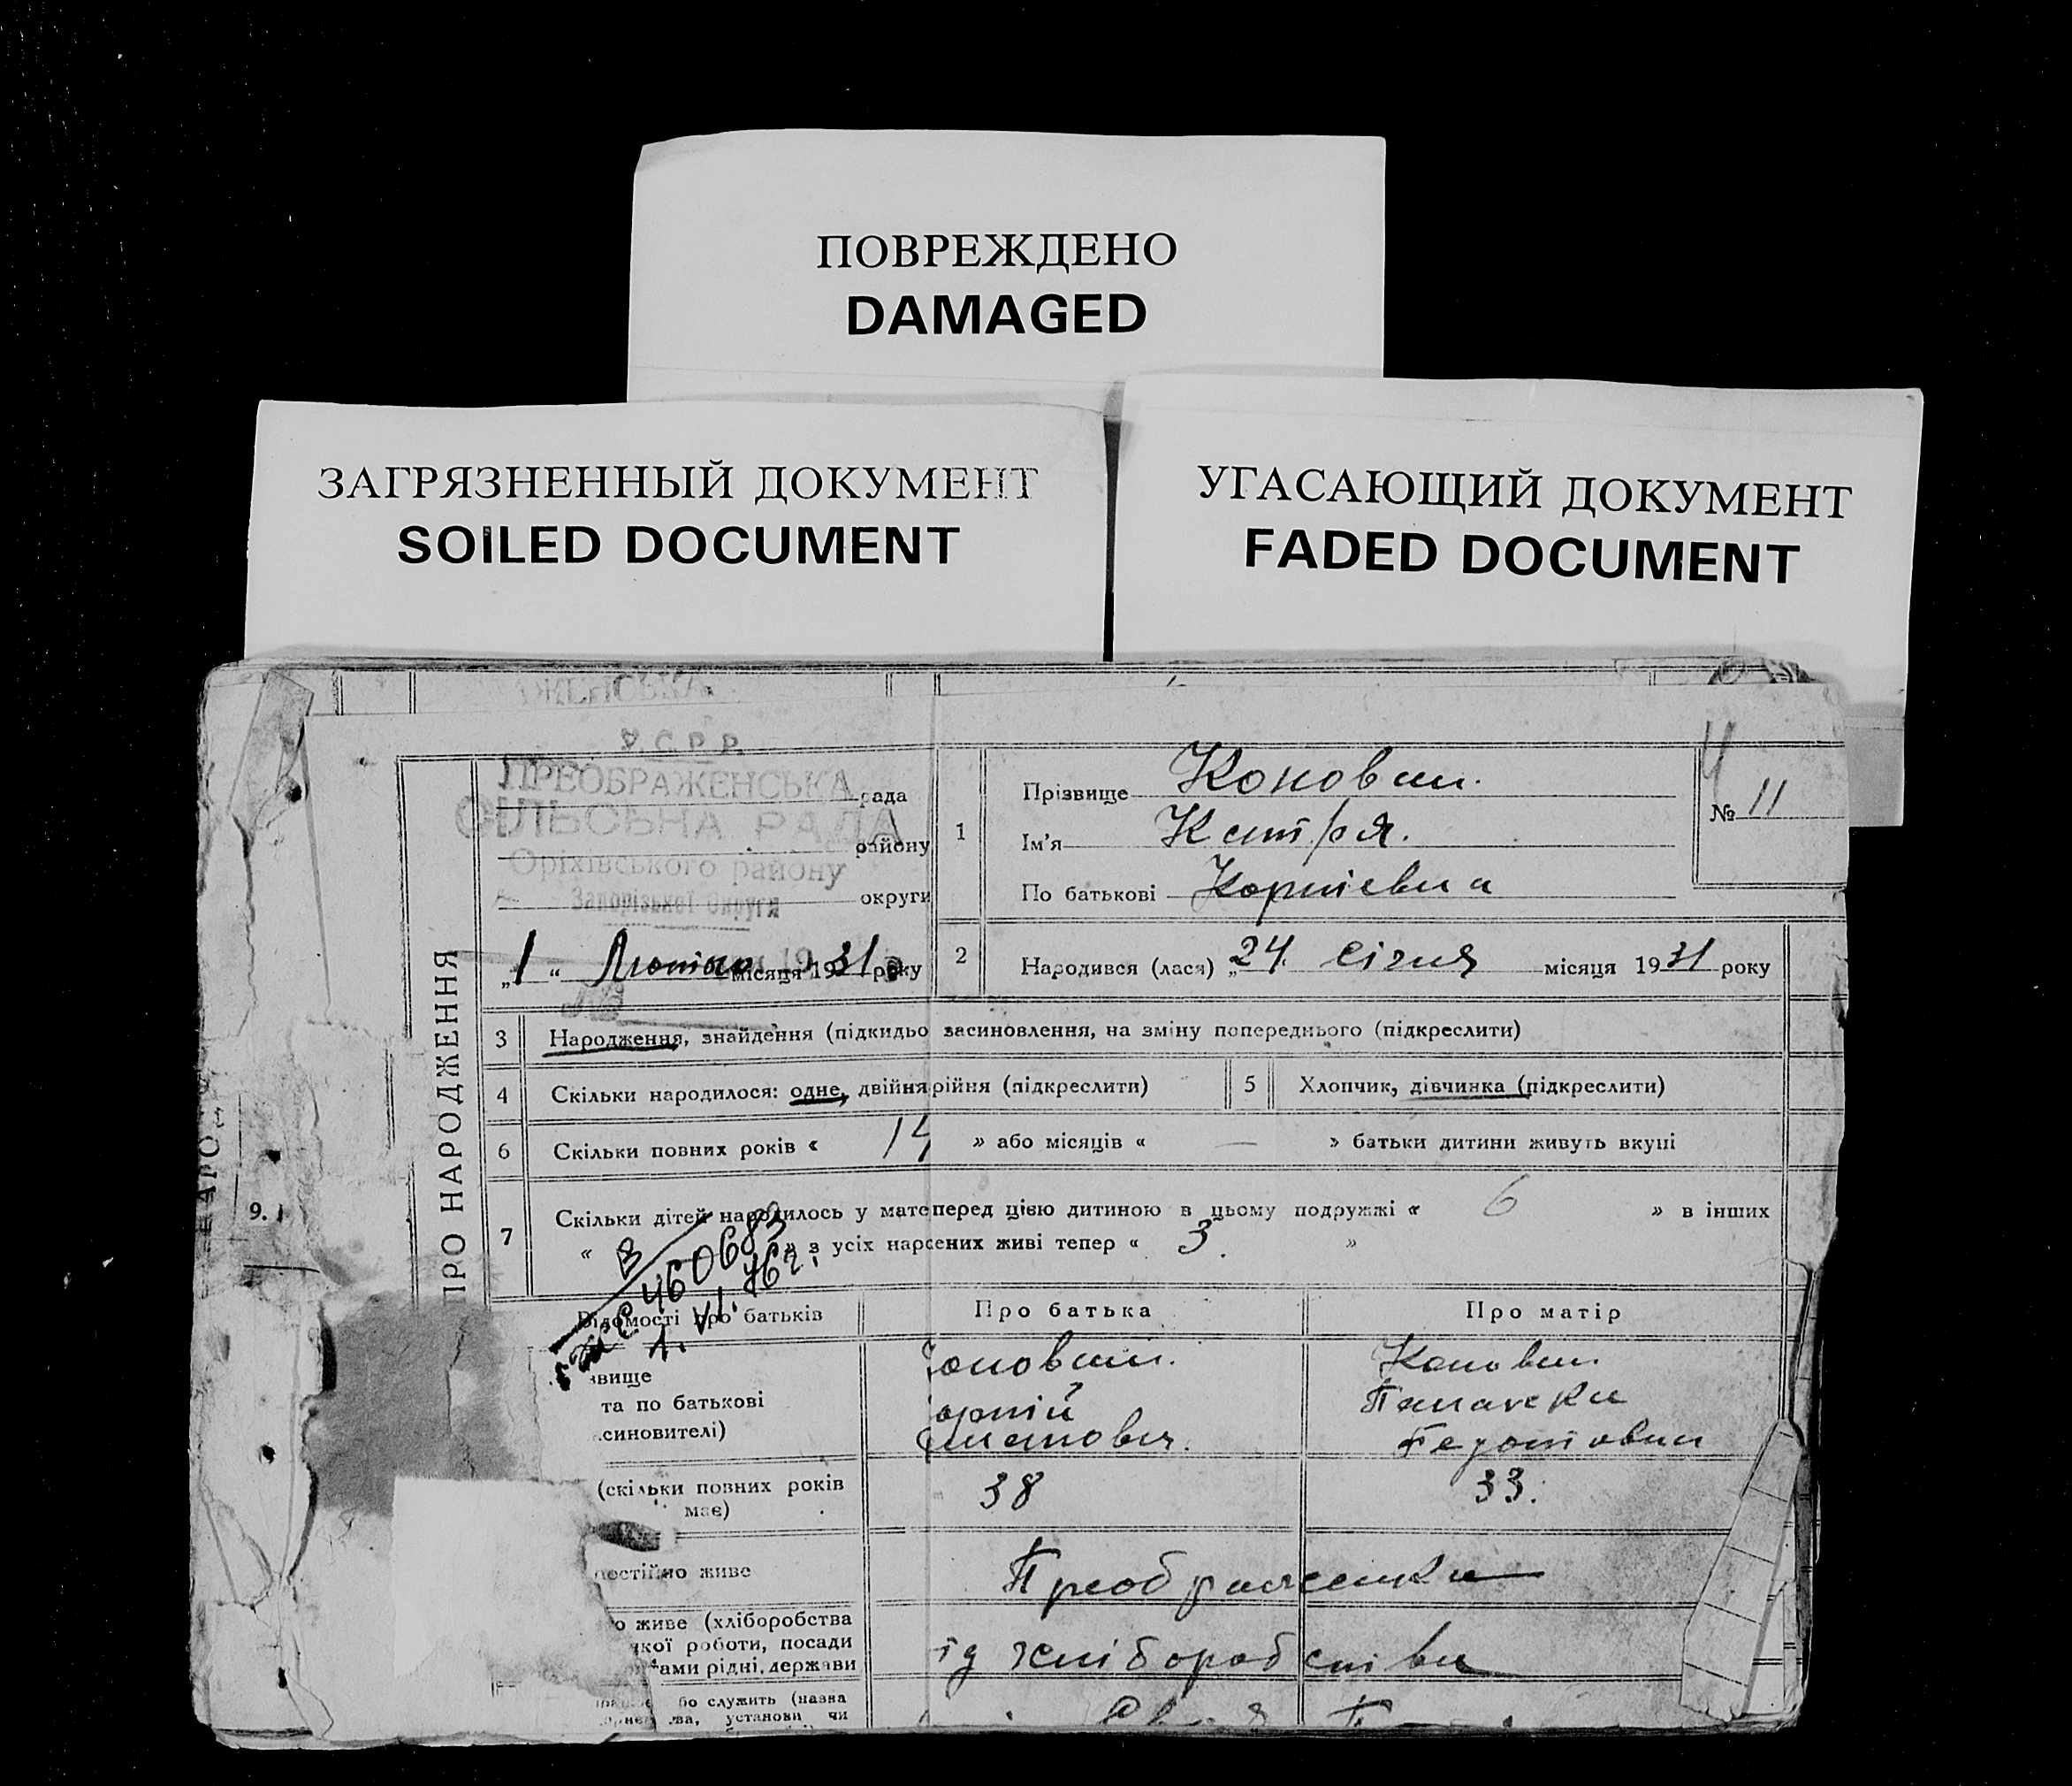 ПОВРЕЖДЕНО
DAMAGED
ЗАГРЯЗНЕННЫЙ ДОКУМЕНТ
SOILED DOCUMENT
УГАСАЮЩИЙ ДОКУМЕНТ
FADED DOCUMENT
У.С.Р.Р.
ПРЕОБРАЖЕНСЬКА рада
СІЛЬСЬКА РАДА
району
Оріхівського району
Запорізької Округи округи
„1“ Лютого місяця 1931 року
ПРО НАРОДЖЕННЯ
1
Прізвище Коновал.
Ім'я Катря.
По батькові Корніевна
№ 11
2
Народився (лася) „24 січня місяця 1931 року
3 Народження, знайдення (підкидьо засиновлення, на зміну попереднього (підкреслити)
4 Скільки народилося: одне, двійня рійня (підкреслити)
5 Хлопчик, дівчинка (підкреслити)
6 Скільки повних років « 14 » або місяців « — » батьки дитини живуть вкупі
7 Скільки дітей народилось у мате перед цією дитиною в цьому подружжі « 6 » в інших
« » з усіх нар ених живі тепер « 3. »
460683
1. VI. 76 г.
9.
Відомості про батьків
Про батька
Про матір
звище
та по батькові
синовителі)
оновал.
орній
Коновал.
Параска
(скільки повних років має)
38
33.
постійно живе
Преображенка
о живе (хліборобства
якої роботи, посади
ами рідні, держави
ід хліборобства
бо служить (назва
ва, установи чи